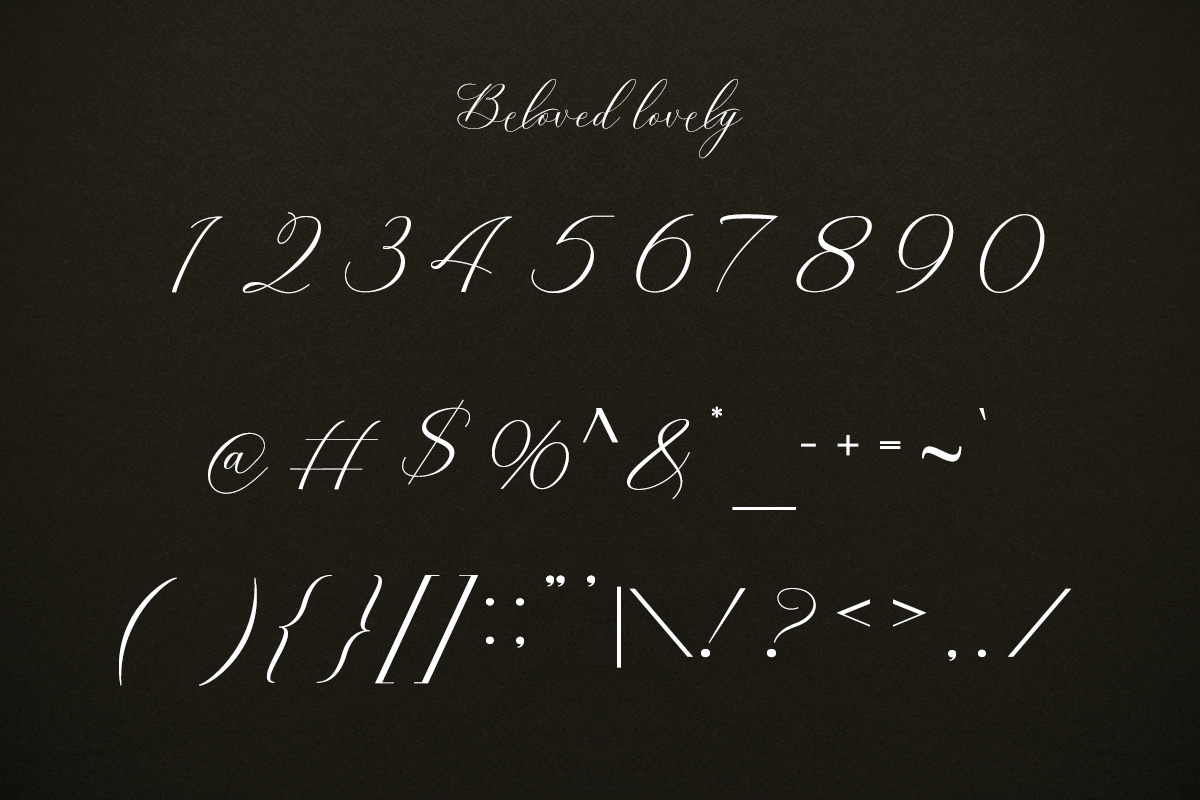 Beloved lovely
1 2 3 4 5 6 7 8 9 0
@ # $ % ^ & * _ - + = ~ `
( ) { } [ ] : ; " ' | \ ! ? < > , . /